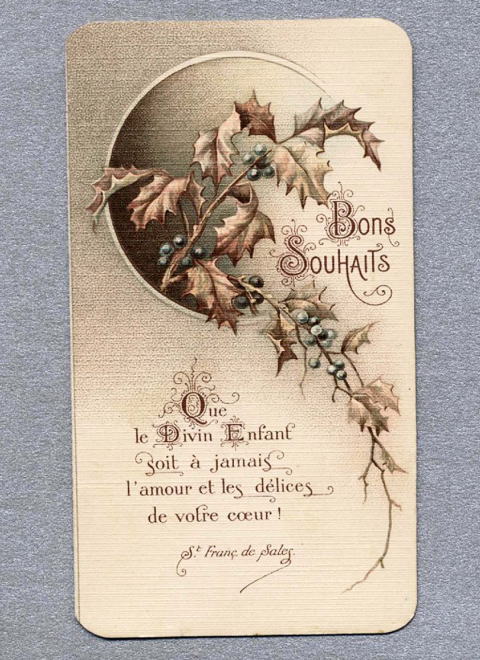 Bons
Souhaits
Que
le Divin Enfant
soit à jamais
l'amour et les délices
de votre cœur !
St. Franç. de Sales.